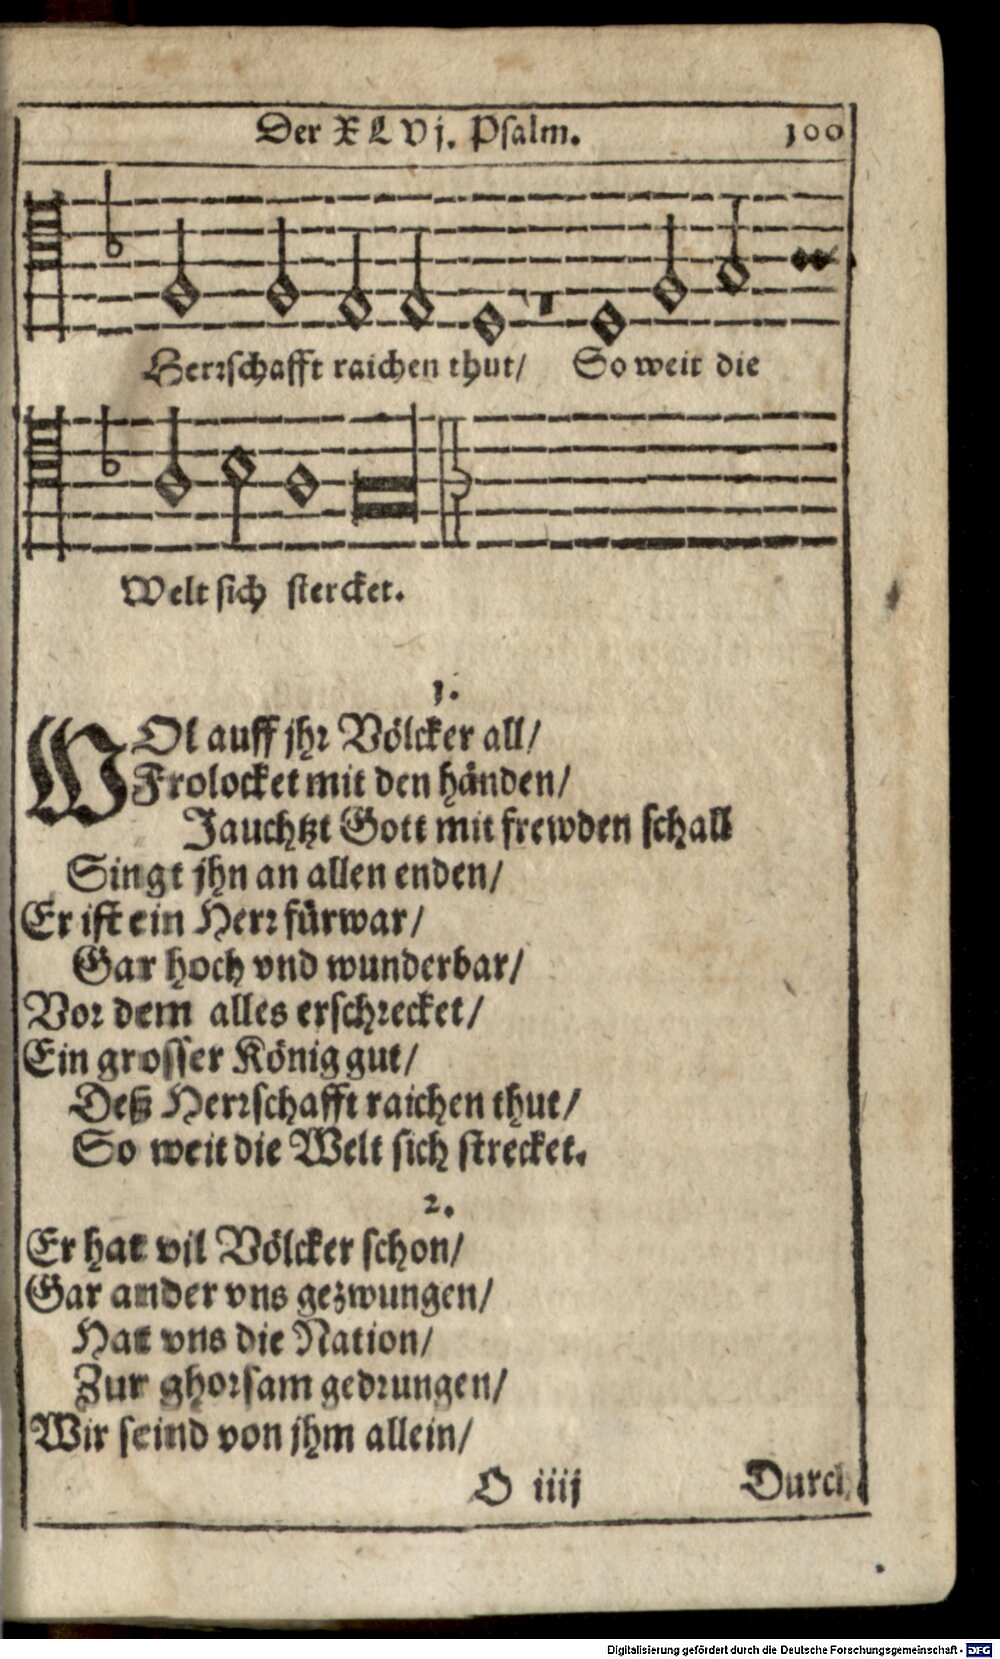 Der XLVj. Psalm. 100
Herrschafft raichen thut/ So weit die
Welt sich stercket.
1.
WOl auff jhr Völcker all/
Frolocket mit den händen/
Jauchtzt Gott mit frewden schall
Singt jhn an allen enden/
Er ist ein Herr fürwar/
Gar hoch vnd wunderbar/
Vor dem alles erschrecket/
Ein grosser König gut/
Deß Herrschafft raichen thut/
So weit die Welt sich strecket.
2.
Er hat vil Völcker schon/
Gar ander vns gezwungen/
Hat vns die Nation/
Zur ghorsam gedrungen/
Wir seind von jhm allein/
O iiij Durch
Digitalisierung gefördert durch die Deutsche Forschungsgemeinschaft - DFG